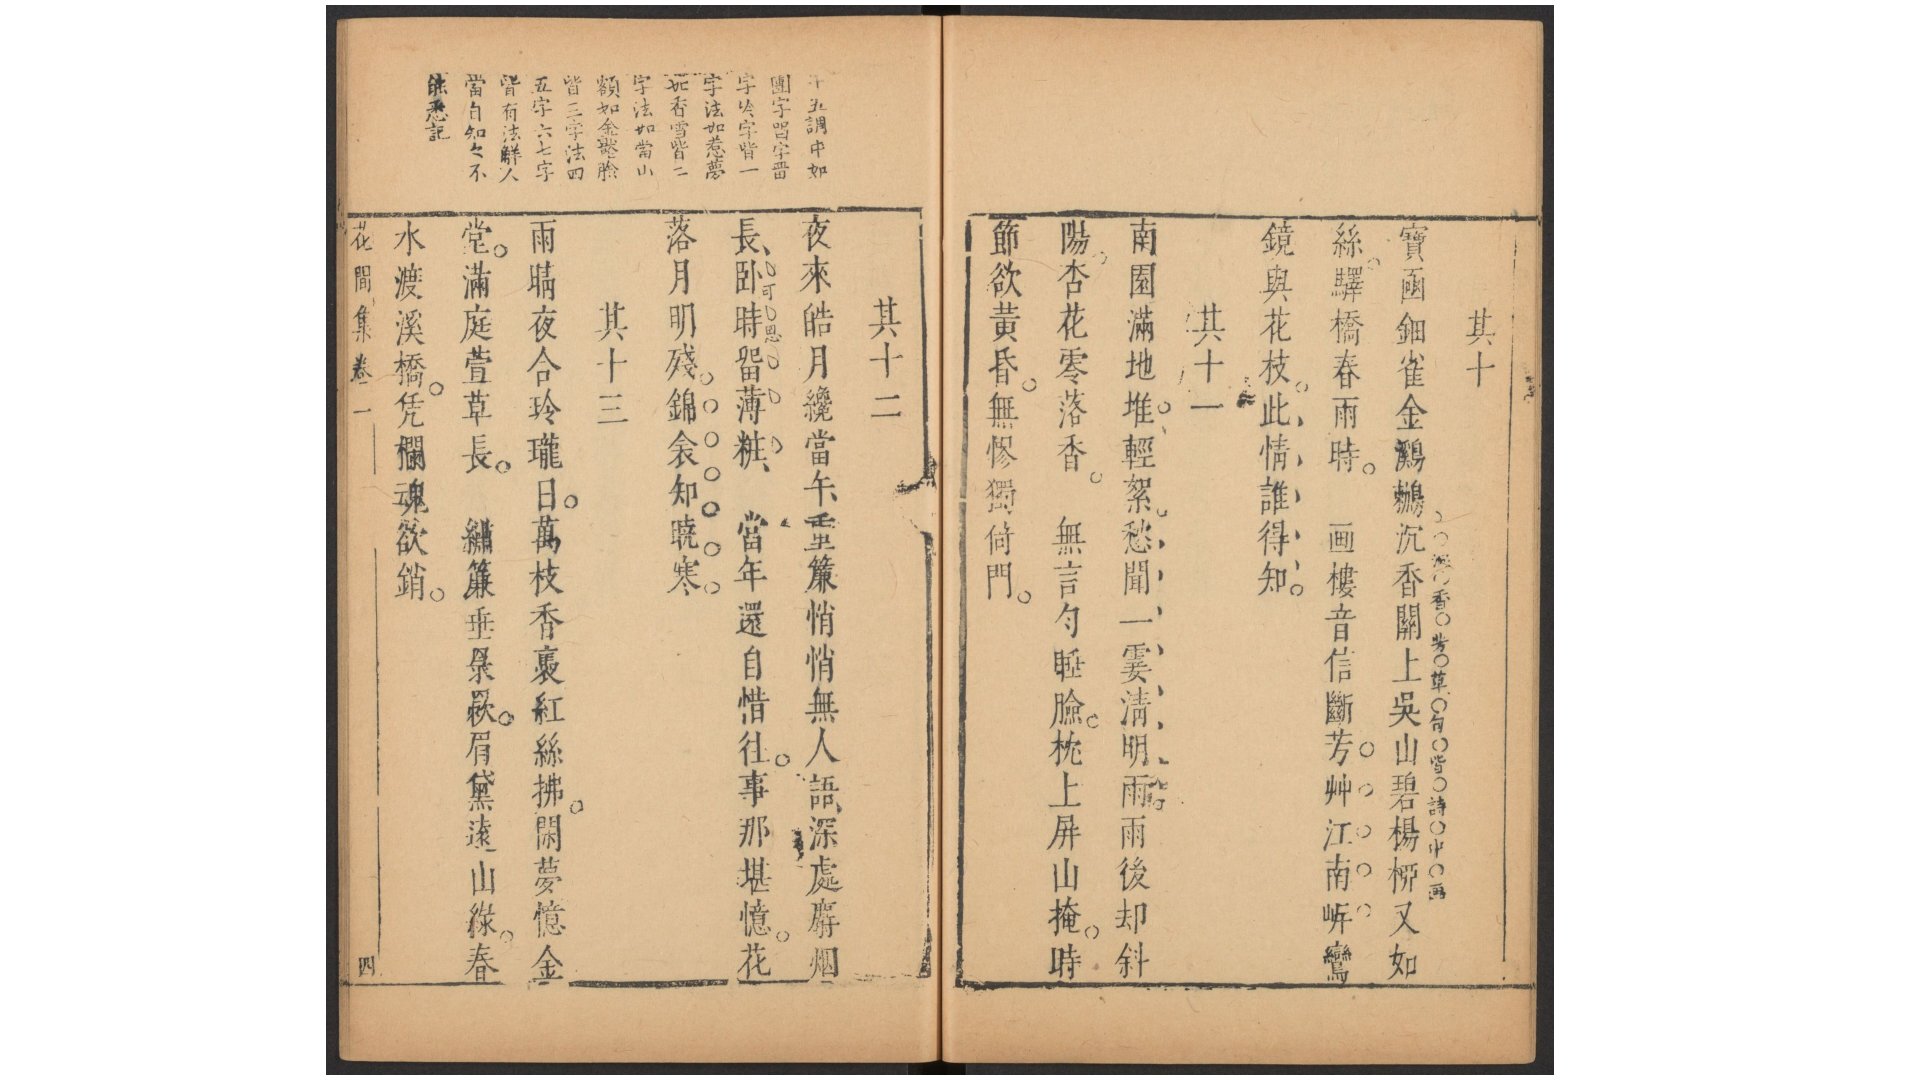 其十
寶函鈿雀金鸂鶒沉香關上吳山碧楊栁又如
香芳草句皆詩中画
絲驛橋春雨時 画樓音信斷芳艸江南岍鸞
鏡與花枝此情誰得知
其十一
南園滿地堆輕絮愁聞一霎清明雨雨後却斜
陽杏花零落香 無言匀睡臉枕上屏山掩時
節欲黃昏無憀獨倚門
其十二
夜來皓月纔當午重簾悄悄無人語深處麝烟
長卧時畱薄粧 當年還自惜往事那堪憶花
可思
落月明殘錦衾知曉寒
其十三
雨晴夜合玲瓏日萬枝香裊紅絲拂閑夢憶金
堂滿庭萱草長 繡簾垂䍡𥴧眉黛遠山綠春
水渡溪橋凭欄魂欲銷
十五調中如
團字畱字冪
字吟字皆一
字法如惹夢
如香雪皆二
字法如當山
額如金靨臉
皆三字法四
五字六七字
皆有法觧人
當自知之不
能悉記
花間集卷一
四